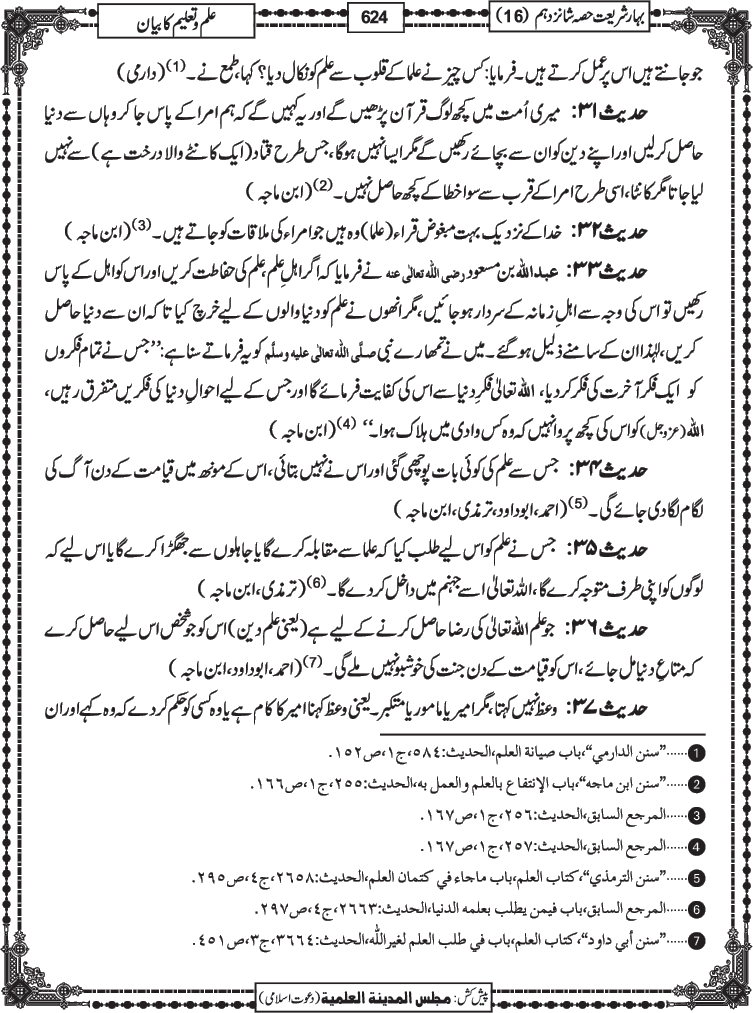 بہارِ شریعت حصہ شانزدہم (16)
624
علم و تعلیم کا بیان
جو جانتے ہیں اس پر عمل کرتے ہیں۔ فرمایا: کس چیز نے علما کے قلوب سے علم کو نکال دیا؟ کہا، طمع نے۔(1) (دارمی)
حدیث ۳۱: میری اُمت میں کچھ لوگ قرآن پڑھیں گے اور یہ کہیں گے کہ ہم امرا کے پاس جا کر وہاں سے دنیا
حاصل کرلیں اور اپنے دین کو ان سے بچائے رکھیں گے مگر ایسا نہیں ہوگا، جس طرح قتاد (ایک کانٹے والا درخت ہے) سے نہیں
لیا جاتا مگر کانٹا، اسی طرح امرا کے قرب سے سوا خطا کے کچھ حاصل نہیں۔(2) (ابن ماجہ)
حدیث ۳۲: خدا کے نزدیک بہت مبغوض قراء (علما) وہ ہیں جو امراء کی ملاقات کو جاتے ہیں۔(3) (ابن ماجہ)
حدیث ۳۳: عبداللہ بن مسعود رضی اللہ تعالٰی عنہ نے فرمایا کہ اگر اہلِ علم، علم کی حفاظت کریں اور اس کو اہل کے پاس
رکھیں تو اس کی وجہ سے اہلِ زمانہ کے سردار ہوجائیں، مگر انھوں نے علم کو دنیا والوں کے لیے خرچ کیا تاکہ ان سے دنیا حاصل
کریں، لہٰذا ان کے سامنے ذلیل ہوگئے۔ میں نے تمھارے نبی صلَّی اللہ تعالٰی علیہ وسلَّم کو یہ فرماتے سنا ہے: ’’جس نے تمام فکروں
کو ایک فکر آخرت کی فکر کردیا، اللہ تعالیٰ فکرِ دنیا سے اس کی کفایت فرمائے گا اور جس کے لیے احوالِ دنیا کی فکریں متفرق رہیں،
اللہ (عزوجل) کو اس کی کچھ پروا نہیں کہ وہ کس وادی میں ہلاک ہوا۔‘‘ (4) (ابن ماجہ)
حدیث ۳۴: جس سے علم کی کوئی بات پوچھی گئی اور اس نے نہیں بتائی، اس کے مونھ میں قیامت کے دن آگ کی
لگام لگادی جائے گی۔(5) (احمد، ابوداود، ترمذی، ابن ماجہ)
حدیث ۳۵: جس نے علم کو اس لیے طلب کیا کہ علما سے مقابلہ کرے گا یا جاہلوں سے جھگڑا کرے گا یا اس لیے کہ
لوگوں کو اپنی طرف متوجہ کرے گا، اللہ تعالیٰ اسے جہنم میں داخل کردے گا۔(6) (ترمذی، ابن ماجہ)
حدیث ۳۶: جو علم اللہ تعالیٰ کی رضا حاصل کرنے کے لیے ہے (یعنی علم دین) اس کو جو شخص اس لیے حاصل کرے
کہ متاعِ دنیا مل جائے، اس کو قیامت کے دن جنت کی خوشبو نہیں ملے گی۔(7) (احمد، ابوداود، ابن ماجہ)
حدیث ۳۷: وعظ نہیں کہتا، مگر امیر یا مامور یا متکبر۔ یعنی وعظ کہنا امیر کا کام ہے یا وہ کسی کو حکم کردے کہ وہ کہے اور ان
1......”سنن الدارمي“، باب صيانة العلم، الحديث: ٥٨٤، ج١، ص١٥٢.
2......”سنن ابن ماجه“، باب الإنتفاع بالعلم والعمل به، الحديث: ٢٥٥، ج١، ص١٦٦.
3......المرجع السابق، الحديث: ٢٥٦، ج١، ص١٦٧.
4......المرجع السابق، الحديث: ٢٥٧، ج١، ص١٦٧.
5......”سنن الترمذي“، كتاب العلم، باب ماجاء في كتمان العلم، الحديث: ٢٦٥٨، ج٤، ص٢٩٥.
6......المرجع السابق، باب فيمن يطلب بعلمه الدنيا، الحديث: ٢٦٦٣، ج٤، ص٢٩٧.
7......”سنن أبي داود“، كتاب العلم، باب في طلب العلم لغير الله، الحديث: ٣٦٦٤، ج٣، ص٤٥١.
پیش کش: مجلس المدينة العلمية (دعوت اسلامی)